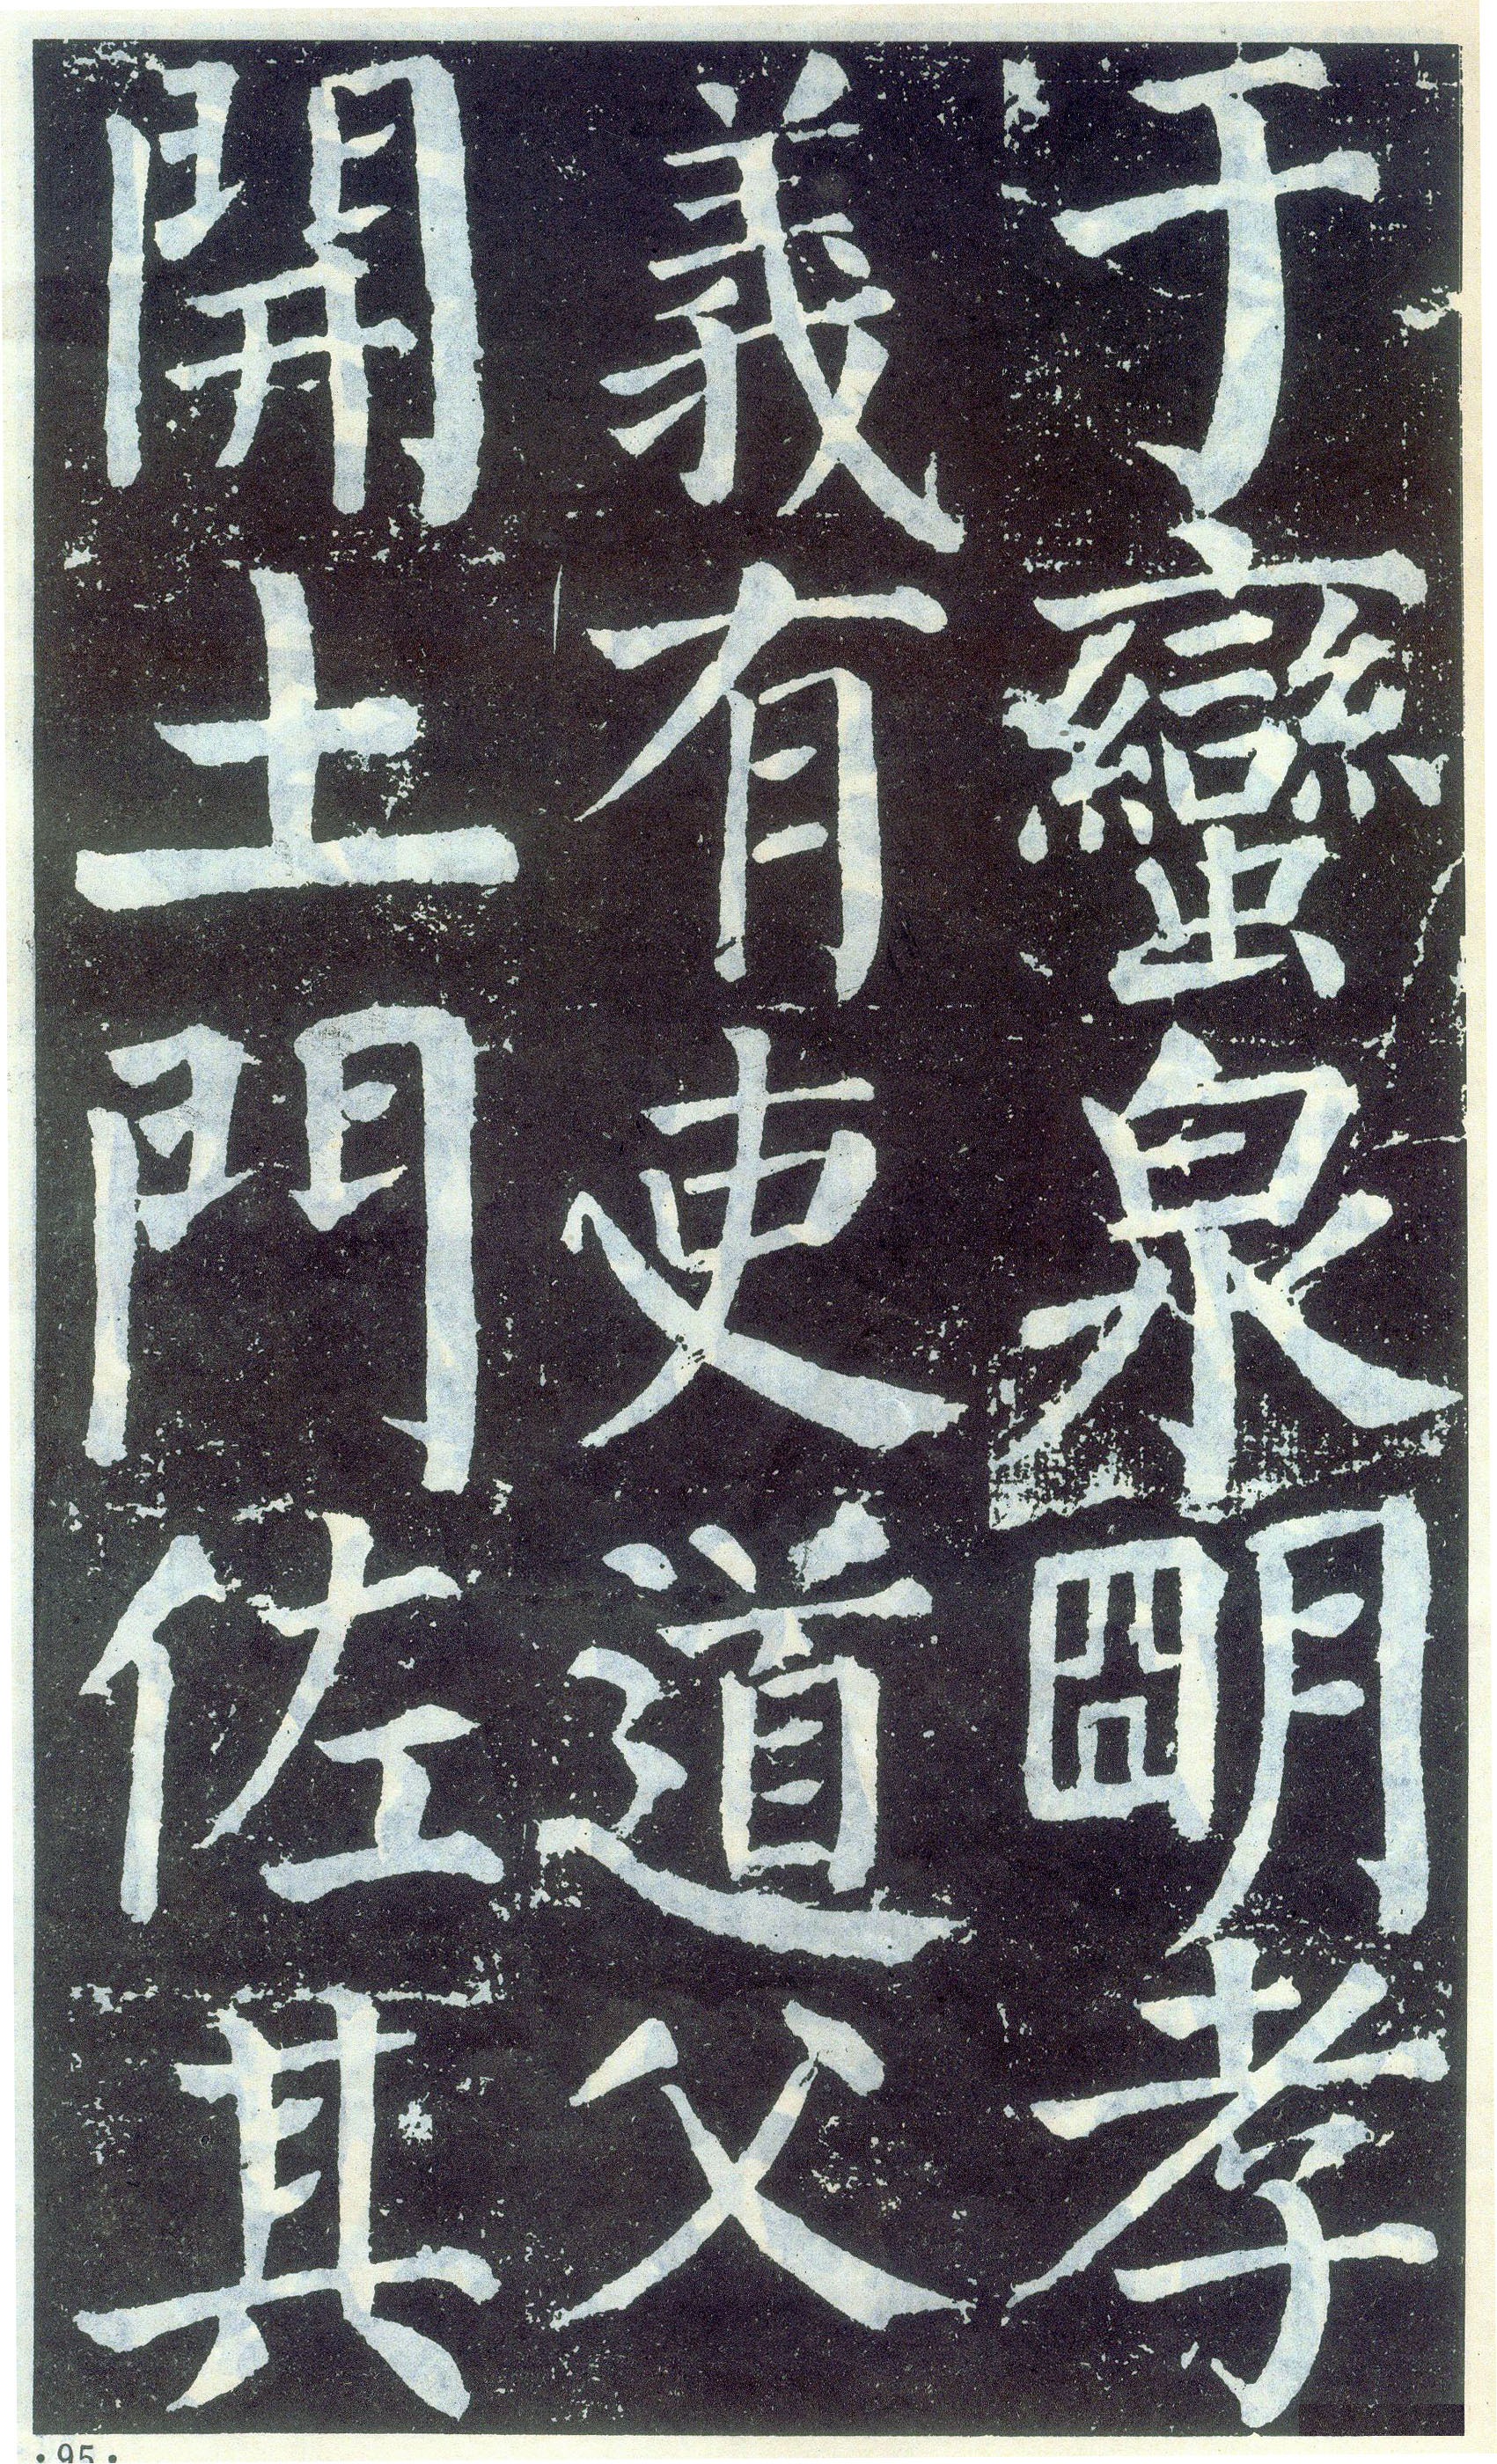 于蠻泉明孝
義有吏道父
開土門佐其
·95·